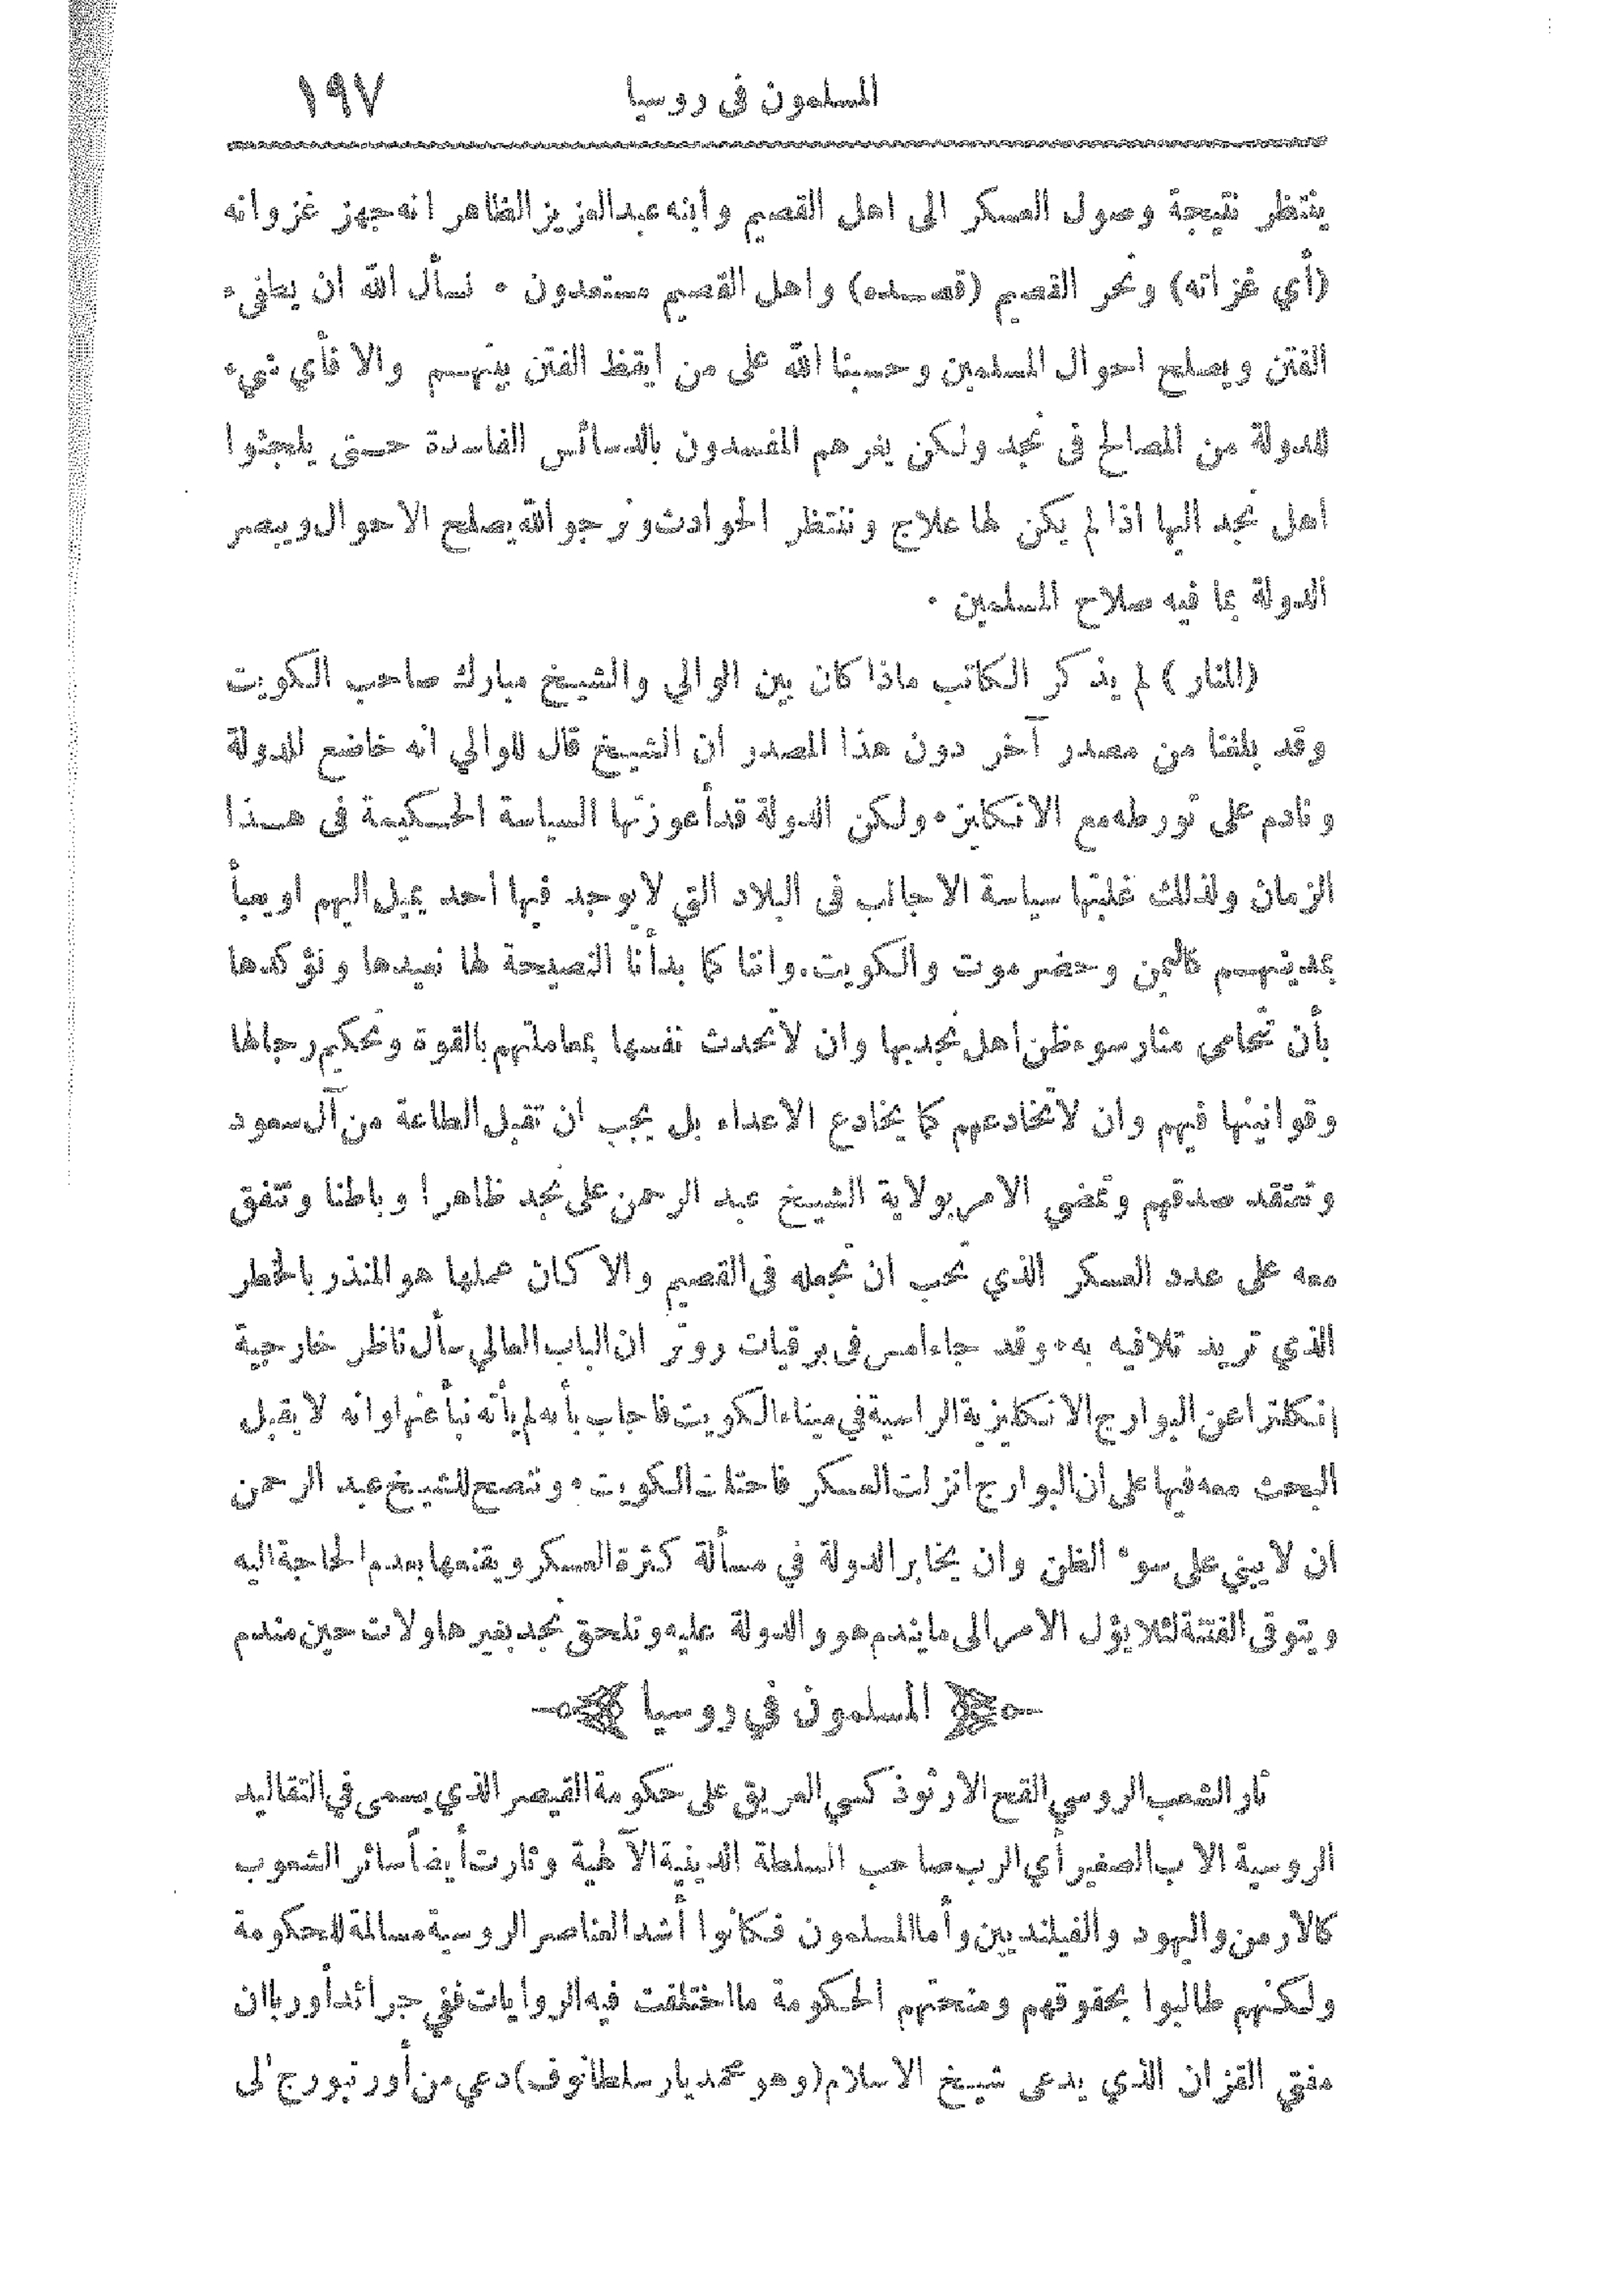 المسلمون فى روسيا ١٩٧
ينتظر نتيجة وصول العسكر الى اهل القصيم وابنه عبدالعزيز الظاهر انه جهز غزوانه
(أي غزاته) ونحر القصيم (قصده) واهل القصيم مستعدون ٠ نسأل الله ان يطفىء
الفتن ويصلح احوال المسلمين وحسبنا الله على من ايقظ الفتن بينهم والا فأي شيء
للدولة من المصالح فى نجد ولكن يغرهم المفسدون بالدسائس الفاسدة حتى يلجئوا
اهل نجد اليها اذا لم يكن لها علاج وننتظر الحوادث ونرجو الله يصلح الاحوال ويبصر
الدولة بما فيه صلاح المسلمين ٠
(المنار) لم يذكر الكاتب ماذا كان بين الوالي والشيخ مبارك صاحب الكويت
وقد بلغنا من مصدر آخر دون هذا المصدر ان الشيخ قال للوالي انه خاضع للدولة
ونادم على تورطه مع الانكليز٠ ولكن الدولة قد أعوزتها السياسة الحكيمة فى هذا
الزمان ولذلك غلبتها سياسة الاجانب فى البلاد التي لا يوجد فيها أحد يميل اليهم او يعبأ
بمدينهم كاليمن وحضرموت والكويت. واننا كما بدأنا النصيحة لها نعيدها ونؤكدها
بأن تتحامى مثار سوء ظن أهل نجد بها وان لا تحدث نفسها بمعاملتهم بالقوة وتحكيم رجالها
وقوانينها فيهم وان لا تخادعهم كما يخادع الاعداء بل يجب ان تقبل الطاعة من آل سعود
وتعتقد صدقهم وتمضي الامر بولاية الشيخ عبد الرحمن على نجد ظاهرا وباطنا وتتفق
معه على عدد العسكر الذي تحب ان تجعله فى القصيم والا كان عملها هو المنذر بالخطر
الذي تريد تلافيه به٠ وقد جاء أمس فى برقيات روتر ان الباب العالي سأل ناظر خارجية
إنكلترا عن البوارج الانكليزية الراسية في ميناء الكويت فاجاب بأنه لم يأته نبأ عنها وانه لا يقبل
البحث معه فيها على ان البوارج انزلت العسكر فاحتلت الكويت٠ وننصح للشيخ عبد الرحمن
ان لا يبني على سوء الظن وان يخابر الدولة في مسألة كثرة العسكر ويقنعها بعدم الحاجة اليه
ويتوقى الفتنة لئلا يؤل الامر الى ما يندم هو والدولة عليه وتلحق نجد بغيرها ولات حين مندم
المسلمون في روسيا
ثار الشعب الروسي القح الارثوذكسي العريق على حكومة القيصر الذي يسمى في التقاليد
الروسية الاب الصغير أي الرب صاحب السلطة الدينية الآلهية وثارت أيضاً سائر الشعوب
كالارمن واليهود والفيلنديين وأما المسلمون فكانوا أشد العناصر الروسية مسالمة للحكومة
ولكنهم طالبوا بحقوقهم ومنحتهم الحكومة ما اختلفت فيه الروايات ففي جرائد أوربا ان
مفتي القزان الذي يدعى شيخ الاسلام (وهو محمد يار سلطانوف) دعي من أورنبورج الى